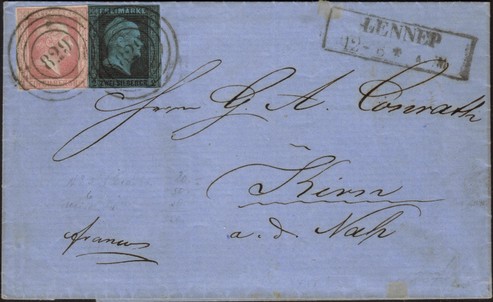 FREIMARKE
829
LENNEP
12 - 6
Herrn G. A. Conrath
Kirn
a. d. Nah
franco